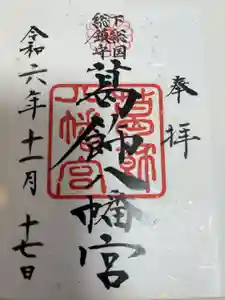 奉拝
下総国
総鎮守
葛飾八幡宮
葛飾八幡宮
令和六年十一月十七日